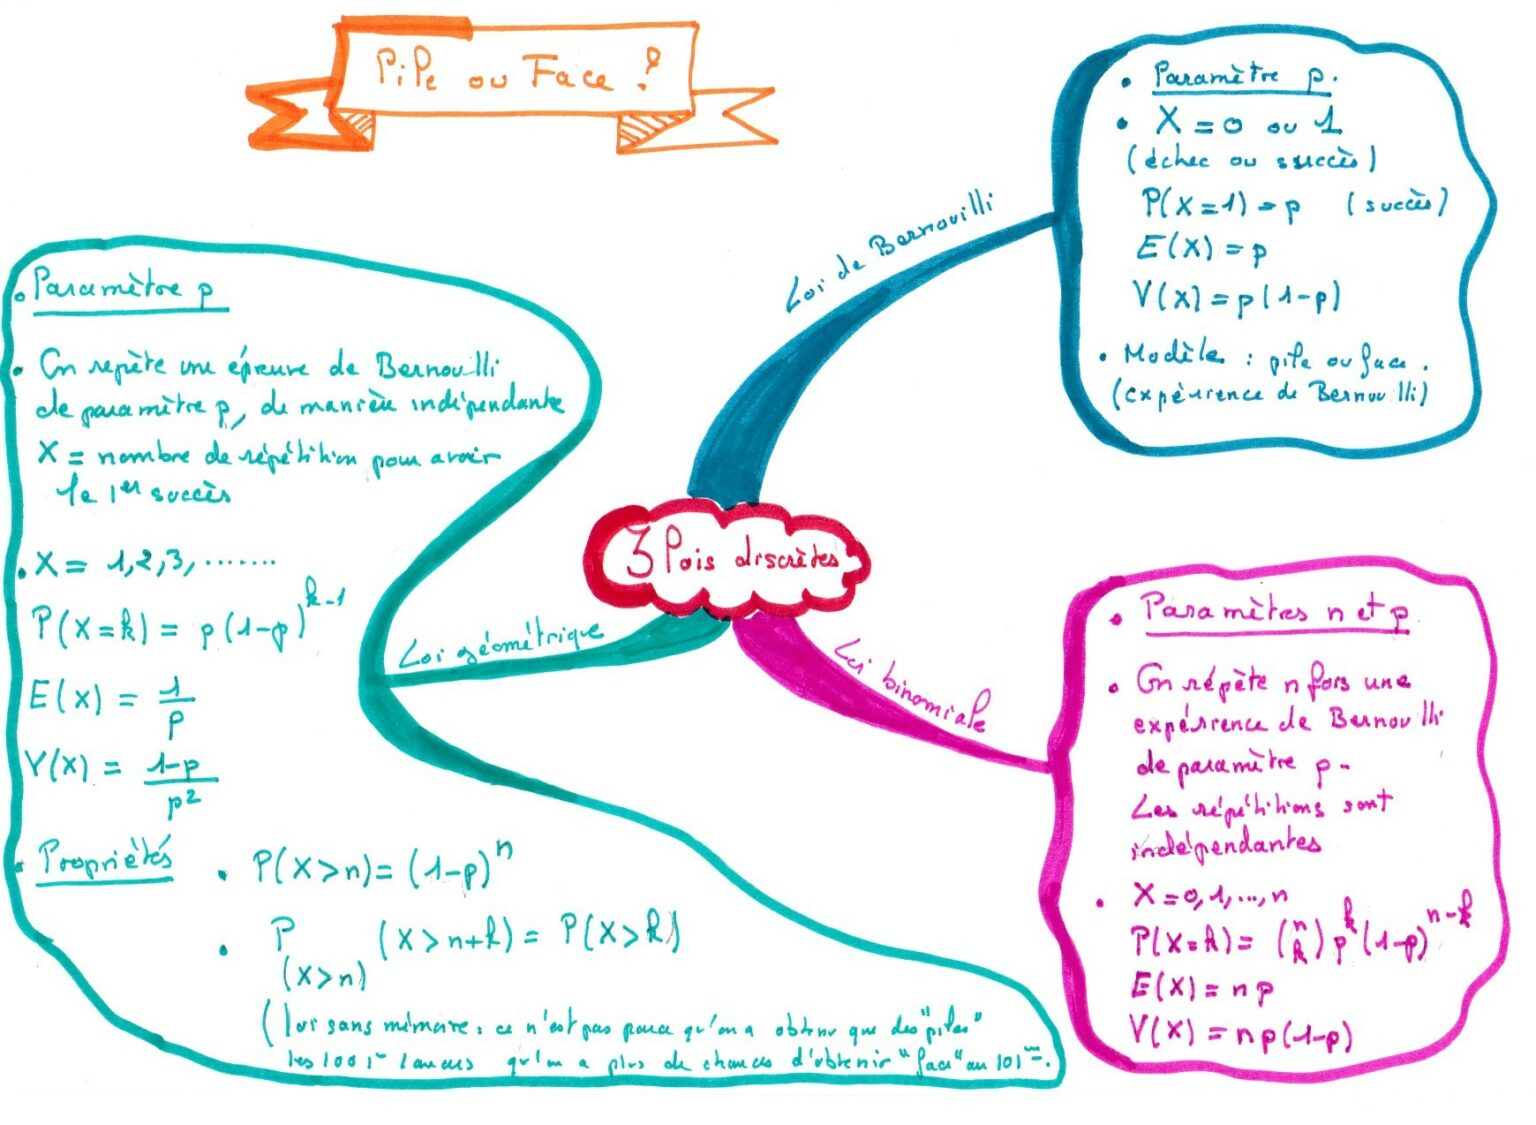 Pile ou Face ?
3 lois discrètes
Loi de Bernouilli
• Paramètre p.
• X = 0 ou 1
(échec ou succès)
P(X=1) = p (succès)
E(X) = p
V(X) = p(1-p)
• Modèle : pile ou face.
(expérience de Bernouilli)
Loi binomiale
• Paramètres n et p
• On répète n fois une
expérience de Bernouilli
de paramètre p.
Les répétitions sont
indépendantes
• X = 0, 1, ..., n
P(X=k) = (n k) p^k (1-p)^{n-k}
E(X) = np
V(X) = np(1-p)
Loi géométrique
• Paramètre p
• On repète une épreuve de Bernouilli
de paramètre p, de manière indépendante
X = nombre de répétition pour avoir
le 1er succès
• X = 1, 2, 3, .......
P(X=k) = p(1-p)^{k-1}
E(X) = 1/p
V(X) = 1-p/p²
• Propriétés
• P(X>n) = (1-p)^n
• P (X>n+k) = P(X>k)
(X>n)
(loi sans mémoire : ce n'est pas parce qu'on a obtenu que des "piles"
les 100 1er lancers qu'on a plus de chances d'obtenir "face" au 101e.